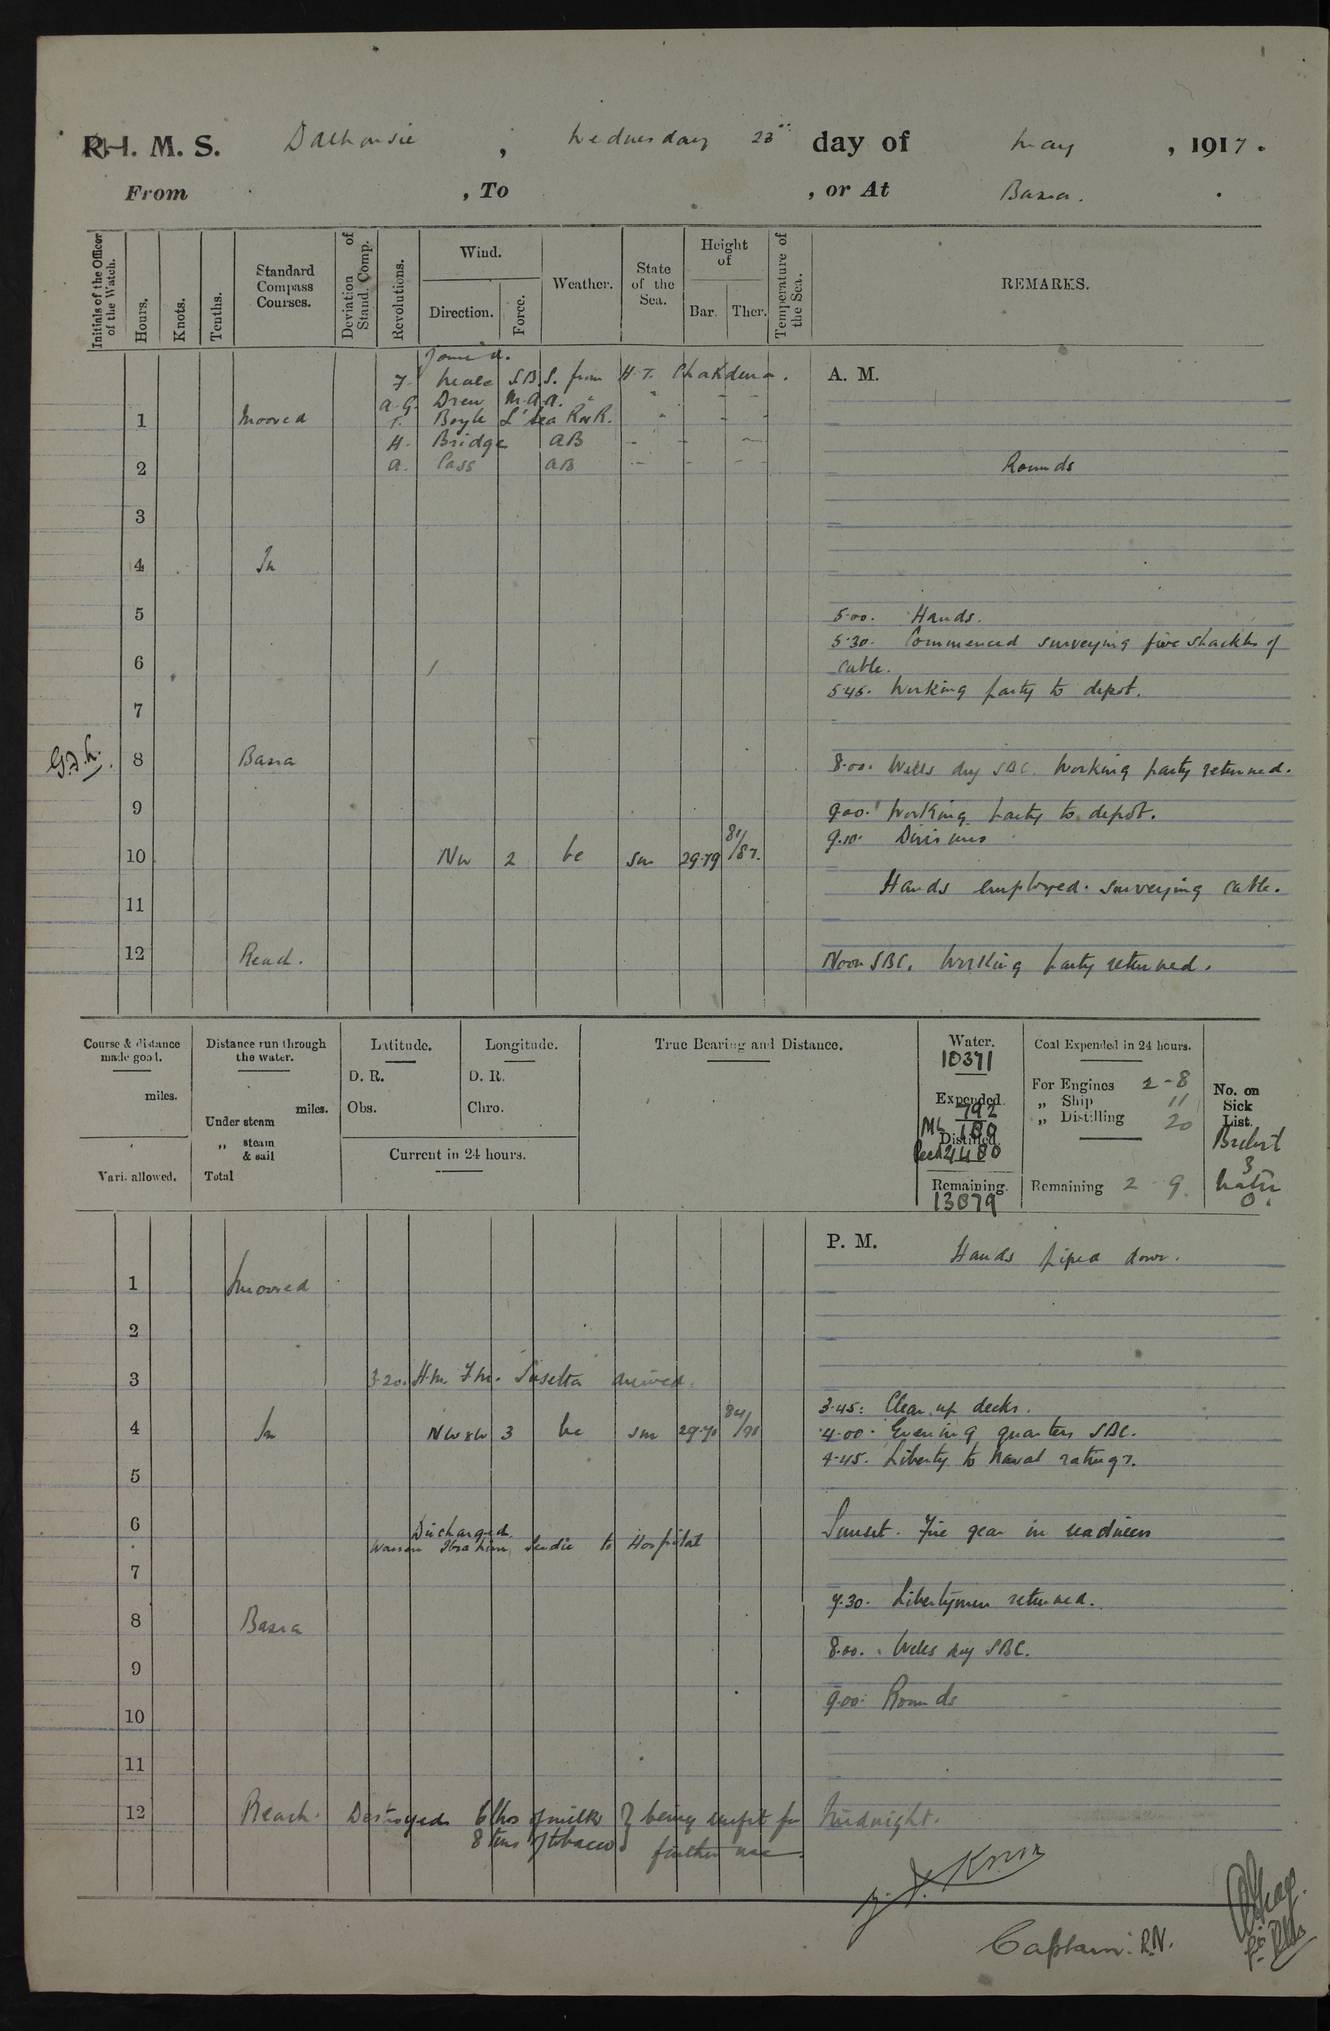 R.I.M.S. Dalhousie, Wednesday 23rd day of May, 1917.
From , To , or At Basra.
Initials of the Officer of the Watch.
Hours.
Knots.
Tenths.
Standard Compass Courses.
Deviation of Stand. Comp.
Revolutions.
Wind.
Direction.
Force.
Weather.
State of the Sea.
Height of
Bar. Ther.
Temperature of the Sea.
REMARKS.
Joined.
F. Neale S.B.S. from H.T. Chakdina.
A.G. Drew M.A.A. " - -
T. Boyle Ls Sea RNR. " - -
H. Bridge AB - - -
A. Cass AB - - -
A. M.
1 Moored
2 Rounds
3
4 In
5 5.00. Hands.
5.30. Commenced surveying five shackles of
6 cable.
5.45. Working party to depot.
7
8 Basra 8.00. Wells dry SBC. Working party returned.
9 9.00. Working party to depot.
9.10. Divisions
10 NW 2 bc sm 29.79 81/87.
Hands employed surveying cable.
11
12 Reach. Noon SBC. Working party returned.
Course & distance made good.
miles.
Vari. allowed.
Distance run through the water.
miles.
Under steam
„ steam & sail
Total
Latitude.
D. R.
Obs.
Longitude.
D. R.
Chro.
Current in 24 hours.
True Bearing and Distance.
Water.
10371
Expended.
792
ML 100
Distilled.
Recd 4400
Remaining.
13879
Coal Expended in 24 hours.
For Engines 2-8
„ Ship 11
„ Distilling 20
Remaining 2 9.
No. on Sick List.
3
0.
P. M. Hands piped down.
1 Moored
2
3 3.20. H.M. arrived.
3.45: Clear up decks.
4 In NWxW 3 bc sm 29.70 84/90 4.00. Evening quarters SBC.
4.45. Liberty to Naval ratings.
5
6 Sunset. Fire gear in readiness
Discharged
Ibrahim to Hospital
7
7.30. Libertymen returned.
8 Basra
8.00. Wells dry SBC.
9
9.00. Rounds
10
11
12 Reach. Destroyed 6 lbs of milk } being unfit for Midnight.
8 tins of tobacco } further use.
Captain. R.N.